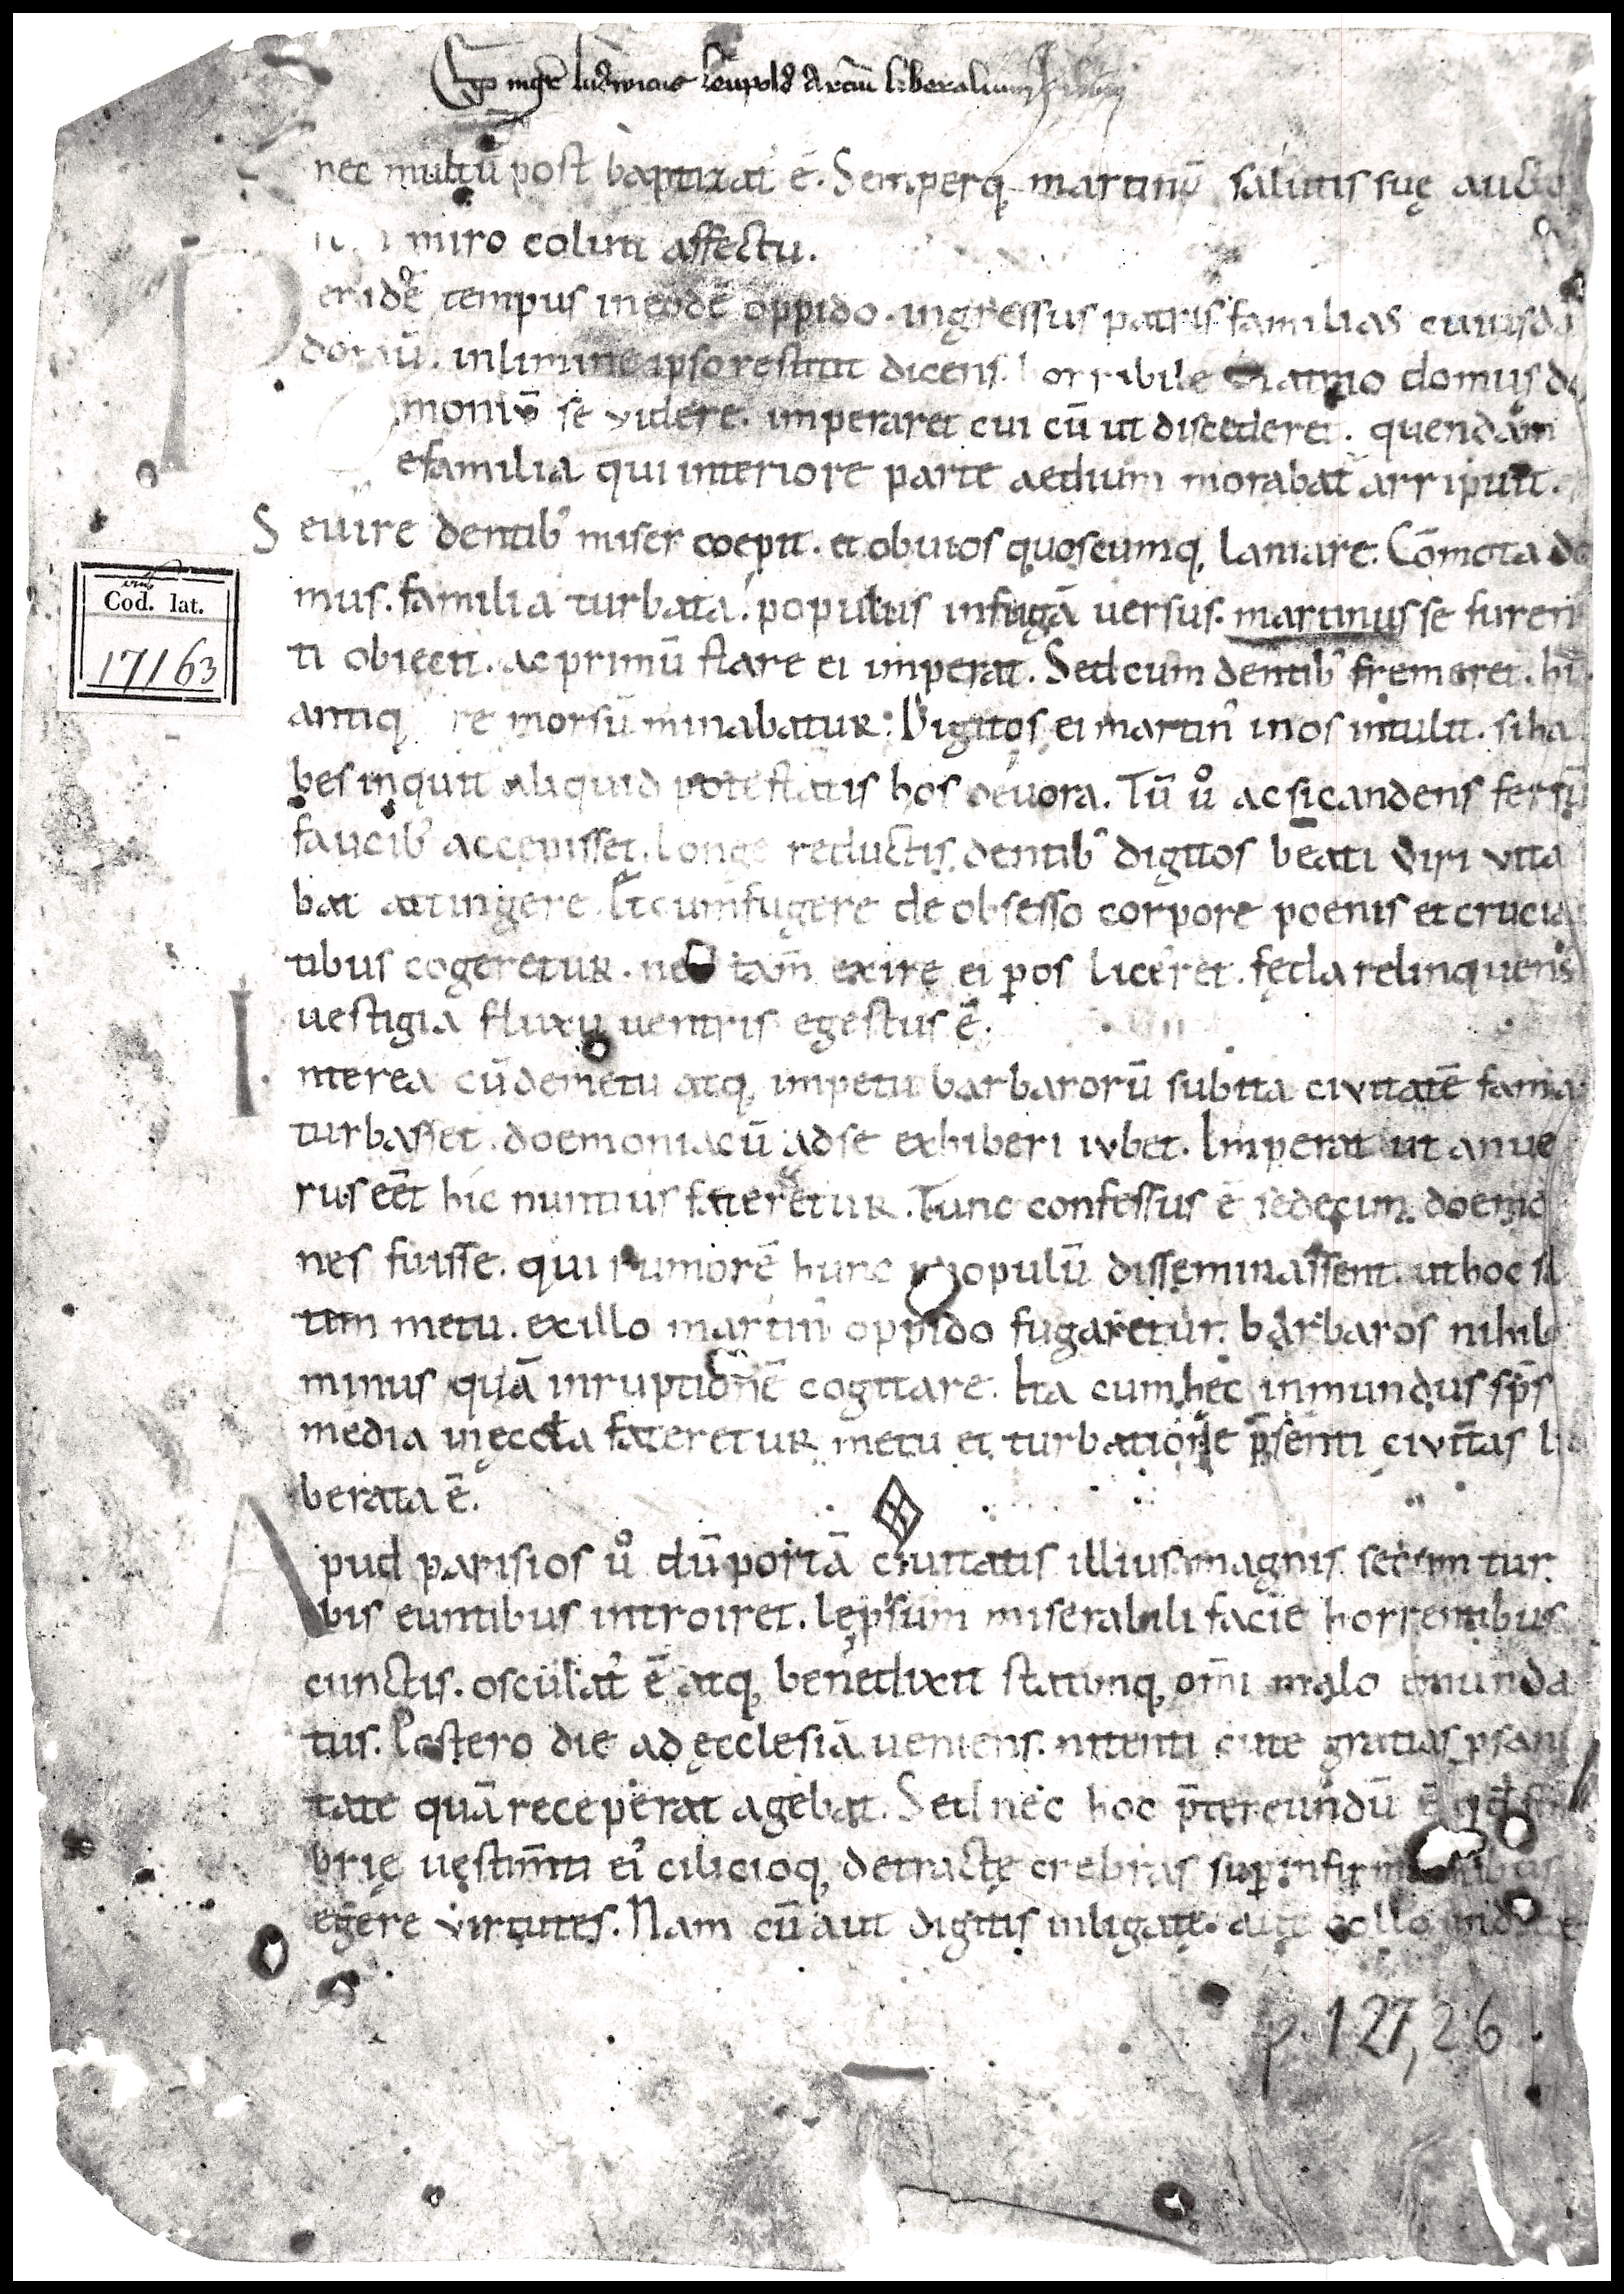 Ego mgr̄ ludwicus leupold Arciū liberalium
nec multū post baptizat᷒ ē. Semperq, martinū salutis suę aucto
miro coluit affectu.
Per idē tempus in eodē oppido. ingressus patris familias cuiusdā
domū. in limine ipso restitit dicens. horribile in atrio domus dę
moniū se videre. imperaret cui cū ut discederet. quendam
e familia qui interiore parte aedium morabat᷒ arripuit.
Sevire dentib᷒ miser coepit. et obuios quoscumq, laniare. Cōmota do
mus. familia turbata. populus in fugā uersus. martinus se furen
ti obiecit. ac primū stare ei imperat. Sed cum dentib᷒ fremeret. hi
antiq re morsū minabatur: Digitos ei martin᷒ in os intulit. si ha
bes inquit aliquid potestatis hos devora. Tū uº ac si candens ferrū
faucib᷒ accepisset. longe reductis dentib᷒ digitos beati viri vita
bat attingere. Et cum fugere de obsesso corpore poenis et crucia
tibus cogeretur. nec tam̄ exire ei p̱ os liceret. fęda relinquens
uestigia fluxu uentris egestus ē.
Interea cū de metu atq, impetu barbarorū subita civitatē fama
turbasset. doemoniacū ad se exhiberi ivbet. Imperat ut an ue
rus eēt hic nuntius fateretur. Tunc confessus ē sedecim doemo
nes fuisse. qui rumorē hunc p̱ populū disseminassent. ut hoc sal
tim metu. ex illo martin᷒ oppido fugaretur. barbaros nihil
minus quā inruptionē cogitare. Ita cum hęc inmundus sp̄s
media in ęccłа fateretur metu et turbatione p̄senti civitas li
berata ē.
Apud parisios uº dū portā civitatis illius magnis secum tur
bis euntibus introiret. lęprosum miserabili facie horrentibus
cunctis. osculat᷒ ē atq, benedixit statimq, om̄i malo emunda
tus. Postero die ad ęcclesiā ueniens. nitenti cute gratias p̱ sani
tate quā receperat agebat. Sed nec hoc p̄tereundū ē qđ fim
brię uestim̄ti ei᷒ cilicioq, detractę crebras sup̱ infirm
egere virtutes. Nam cū aut digitis inligatę. aut collo inditę
Cod. lat.
17163
p. 127,26